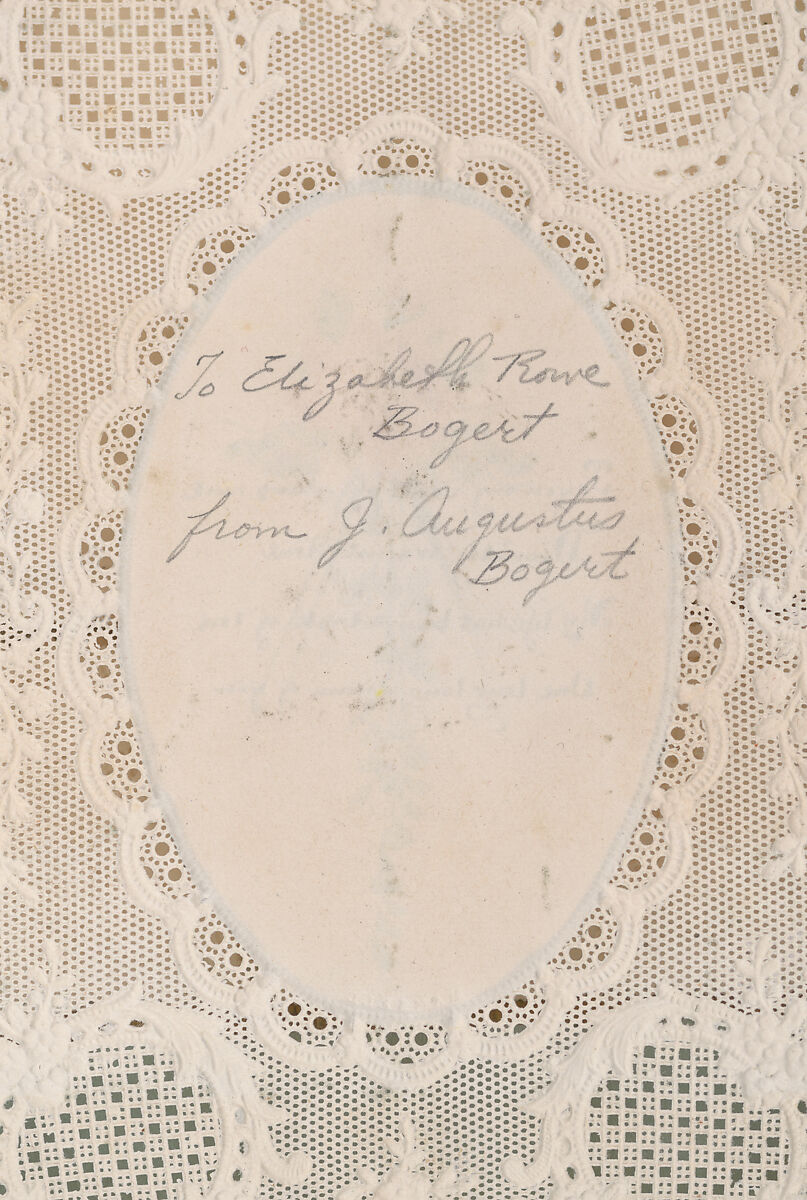 To Elizabeth Rowe
Bogert
from J. Augustus
Bogert